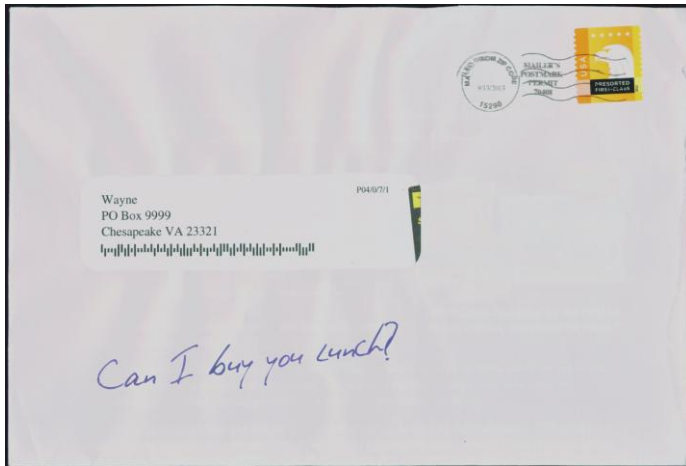 MAILED FROM ZIP CODE
15290
MAILER'S
POSTMARK
PERMIT
USA
PRESORTED
FIRST-CLASS
P04/0/7/1
Wayne
PO Box 9999
Chesapeake VA 23321
Can I buy you Lunch?